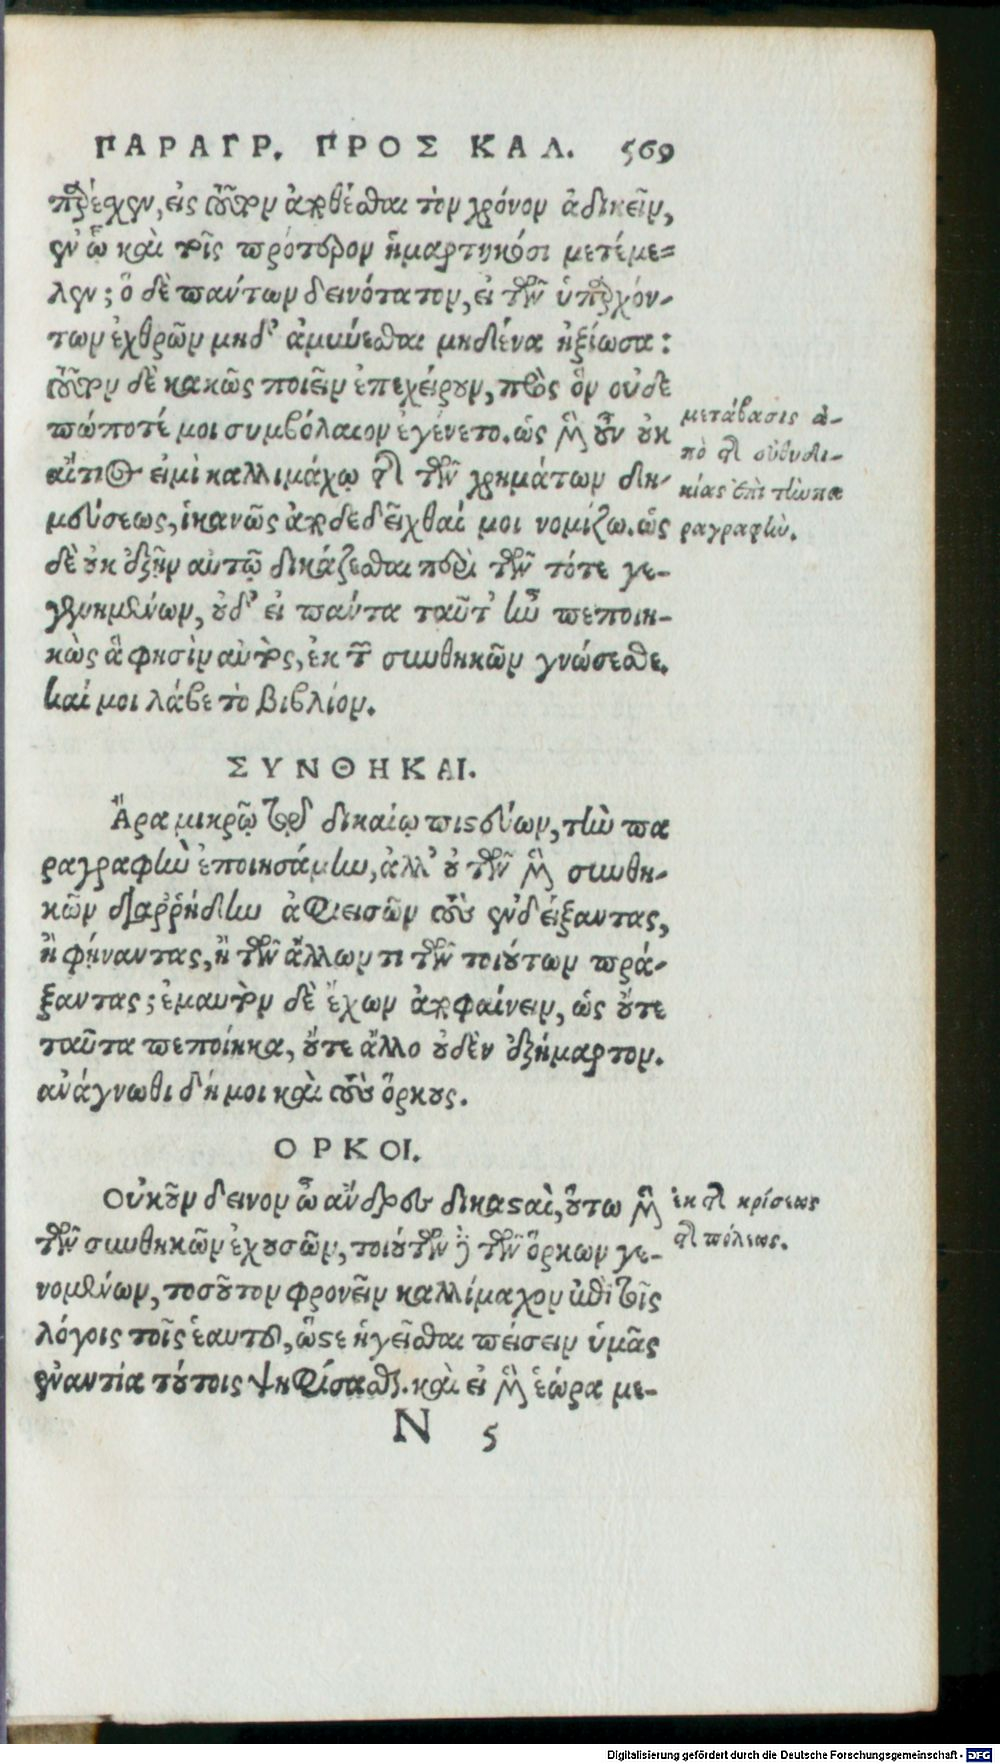 ΠΑΡΑΓΡ. ΠΡΟΣ ΚΑΛ. 569
παρέχειν, εἰς τοῦτον ἀποθέσθαι τὸν χρόνον ἀδικεῖν,
ἐν ᾧ καὶ τοῖς πρότερον ἡμαρτηκόσι μετέμε=
λεν; ὃ δὲ πάντων δεινότατον, εἰ τῶν ὑπαρχόν-
των ἐχθρῶν μηδ' ἀμύνεσθαι μηδένα ἠξίωσα:
τοῦτον δὲ κακῶς ποιεῖν ἐπεχείρουν, πρὸς ὃν οὐδὲ
πώποτέ μοι συμβόλαιον ἐγένετο. ὡς μὲν οὖν οὐκ
αἴτιος εἰμὶ καλλιμάχῳ τῆς τῶν χρημάτων δη-
μεύσεως, ἱκανῶς ἀποδεδεῖχθαί μοι νομίζω. ὡς
δὲ οὐκ ἐξῆν αὐτῷ δικάζεσθαι περὶ τῶν τότε γε-
γενημένων, οὐδ' εἰ πάντα ταῦτ' ἦν πεποιη-
κὼς ἅ φησὶν αὐτὸς, ἐκ τῶν συνθηκῶν γνώσεσθε.
καί μοι λάβε τὸ βιβλίον.
μετάβασις ἀ-
πὸ τῆς εὐθυδι-
κίας ἐπὶ τὴν πα
ραγραφήν.
ΣΥΝΘΗΚΑΙ.
Ἆρα μικρῷ τῷ δικαίῳ πιστεύων, τὴν πα
ραγραφὴν ἐποιησάμην, ἀλλ' οὐ τῶν μὲν συνθη-
κῶν διαῤῥήδην ἀφιεισῶν τοὺς ἐνδείξαντας,
ἢ φήναντας, ἢ τῶν ἄλλων τι τῶν τοιούτων πρά-
ξαντας; ἐμαυτὸν δὲ ἔχων ἀποφαίνειν, ὡς οὔτε
ταῦτα πεποίηκα, οὔτε ἄλλο οὐδὲν ἐξήμαρτον.
ἀνάγνωθι δή μοι καὶ τοὺς ὅρκους.
ΟΡΚΟΙ.
Οὐκοῦν δεινὸν ὦ ἄνδρες δικασταὶ, οὕτω μὲν
τῶν συνθηκῶν ἐχουσῶν, τοιούτων δὲ τῶν ὅρκων γε-
νομένων, τοσοῦτον φρονεῖν καλλίμαχον ἐπὶ τοῖς
λόγοις τοῖς ἑαυτοῦ, ὥστε ἡγεῖσθαι πείσειν ὑμᾶς
ἐναντία τούτοις ψηφίσασθαι. καὶ εἰ μὲν ἑώρα με-
ἐκ τῆς κρίσεως
τῆς πόλεως.
N 5
Digitalisierung gefördert durch die Deutsche Forschungsgemeinschaft - DFG